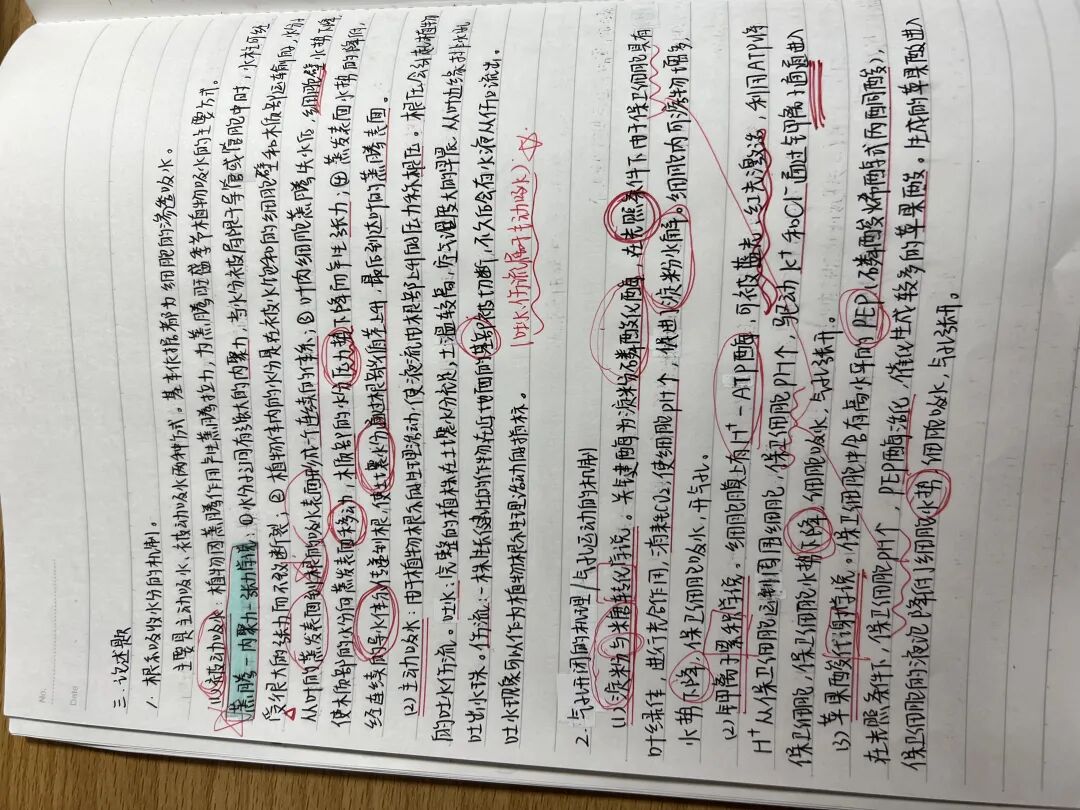 No.
Date
三.论述题
1.根系吸收水分的机制.
主要是主动吸水、被动吸水两种方式。基本依据都为细胞的渗透吸水。
(1)被动吸水:植物因蒸腾作用产生蒸腾拉力,为蒸腾旺盛季节植物吸水的主要方式。
蒸腾-内聚力-张力学说:①水分子间有强大的内聚力,当水分被局限于导管或管胞中时,水柱可经
受很大的张力而不致断裂;②植物体内的水分是在被水饱和的细胞壁和木质部运输的,水分
从叶的蒸发表面到根的吸水表面形成一个连续的体系;③叶肉细胞蒸腾失水后,细胞壁水势下降
使木质部的水分向蒸发表面移动,木质部的水分压力势下降而产生张力;④蒸发表面水势的降低,
经连续的导水体系传递到根,使土壤水分通过根部沿茎上升,最后到达叶的蒸腾表面。
(2)主动吸水:由于植物根系的生理活动,使液流由根部上升的压力称根压。根压会引起植物
的吐水、伤流。吐水:完整的植株在土壤水分充足,土温较高,空气湿度大的早晨,从叶边缘排水孔
吐出水珠。伤流:一株生长健壮的作物在近地面的基部被切断,不久后会有水液从伤口流出。
吐水现象可以作为植物根系生理活动的指标。
(吐水、伤流属于主动吸水)
2.气孔开闭的机理/气孔运动的机制
(1)淀粉与糖转化学说。关键酶为淀粉磷酸化酶,在光照条件下由于保卫细胞具有
叶绿体,进行光合作用,消耗CO2,使细胞pH个,促进淀粉水解。细胞内可溶物增多,
水势下降,保卫细胞吸水,开气孔。
(2)钾离子累积学说。细胞膜上有H⁺-ATP酶,可被蓝光、红光激活,利用ATP将
H⁺从保卫细胞运输到周围细胞,保卫细胞pH个,驱动K⁺和Cl⁻通过钾离子通道进入
保卫细胞,保卫细胞水势下降,细胞吸水,气孔张开。
(3)苹果酸代谢学说。保卫细胞中含有高水平的PEP(磷酸烯醇式丙酮酸),
在光照条件下,保卫细胞pH个,PEP酶活化,催化生成较多的苹果酸。生成的苹果酸进入
保卫细胞的液泡降低了细胞水势,细胞吸水,气孔张开。